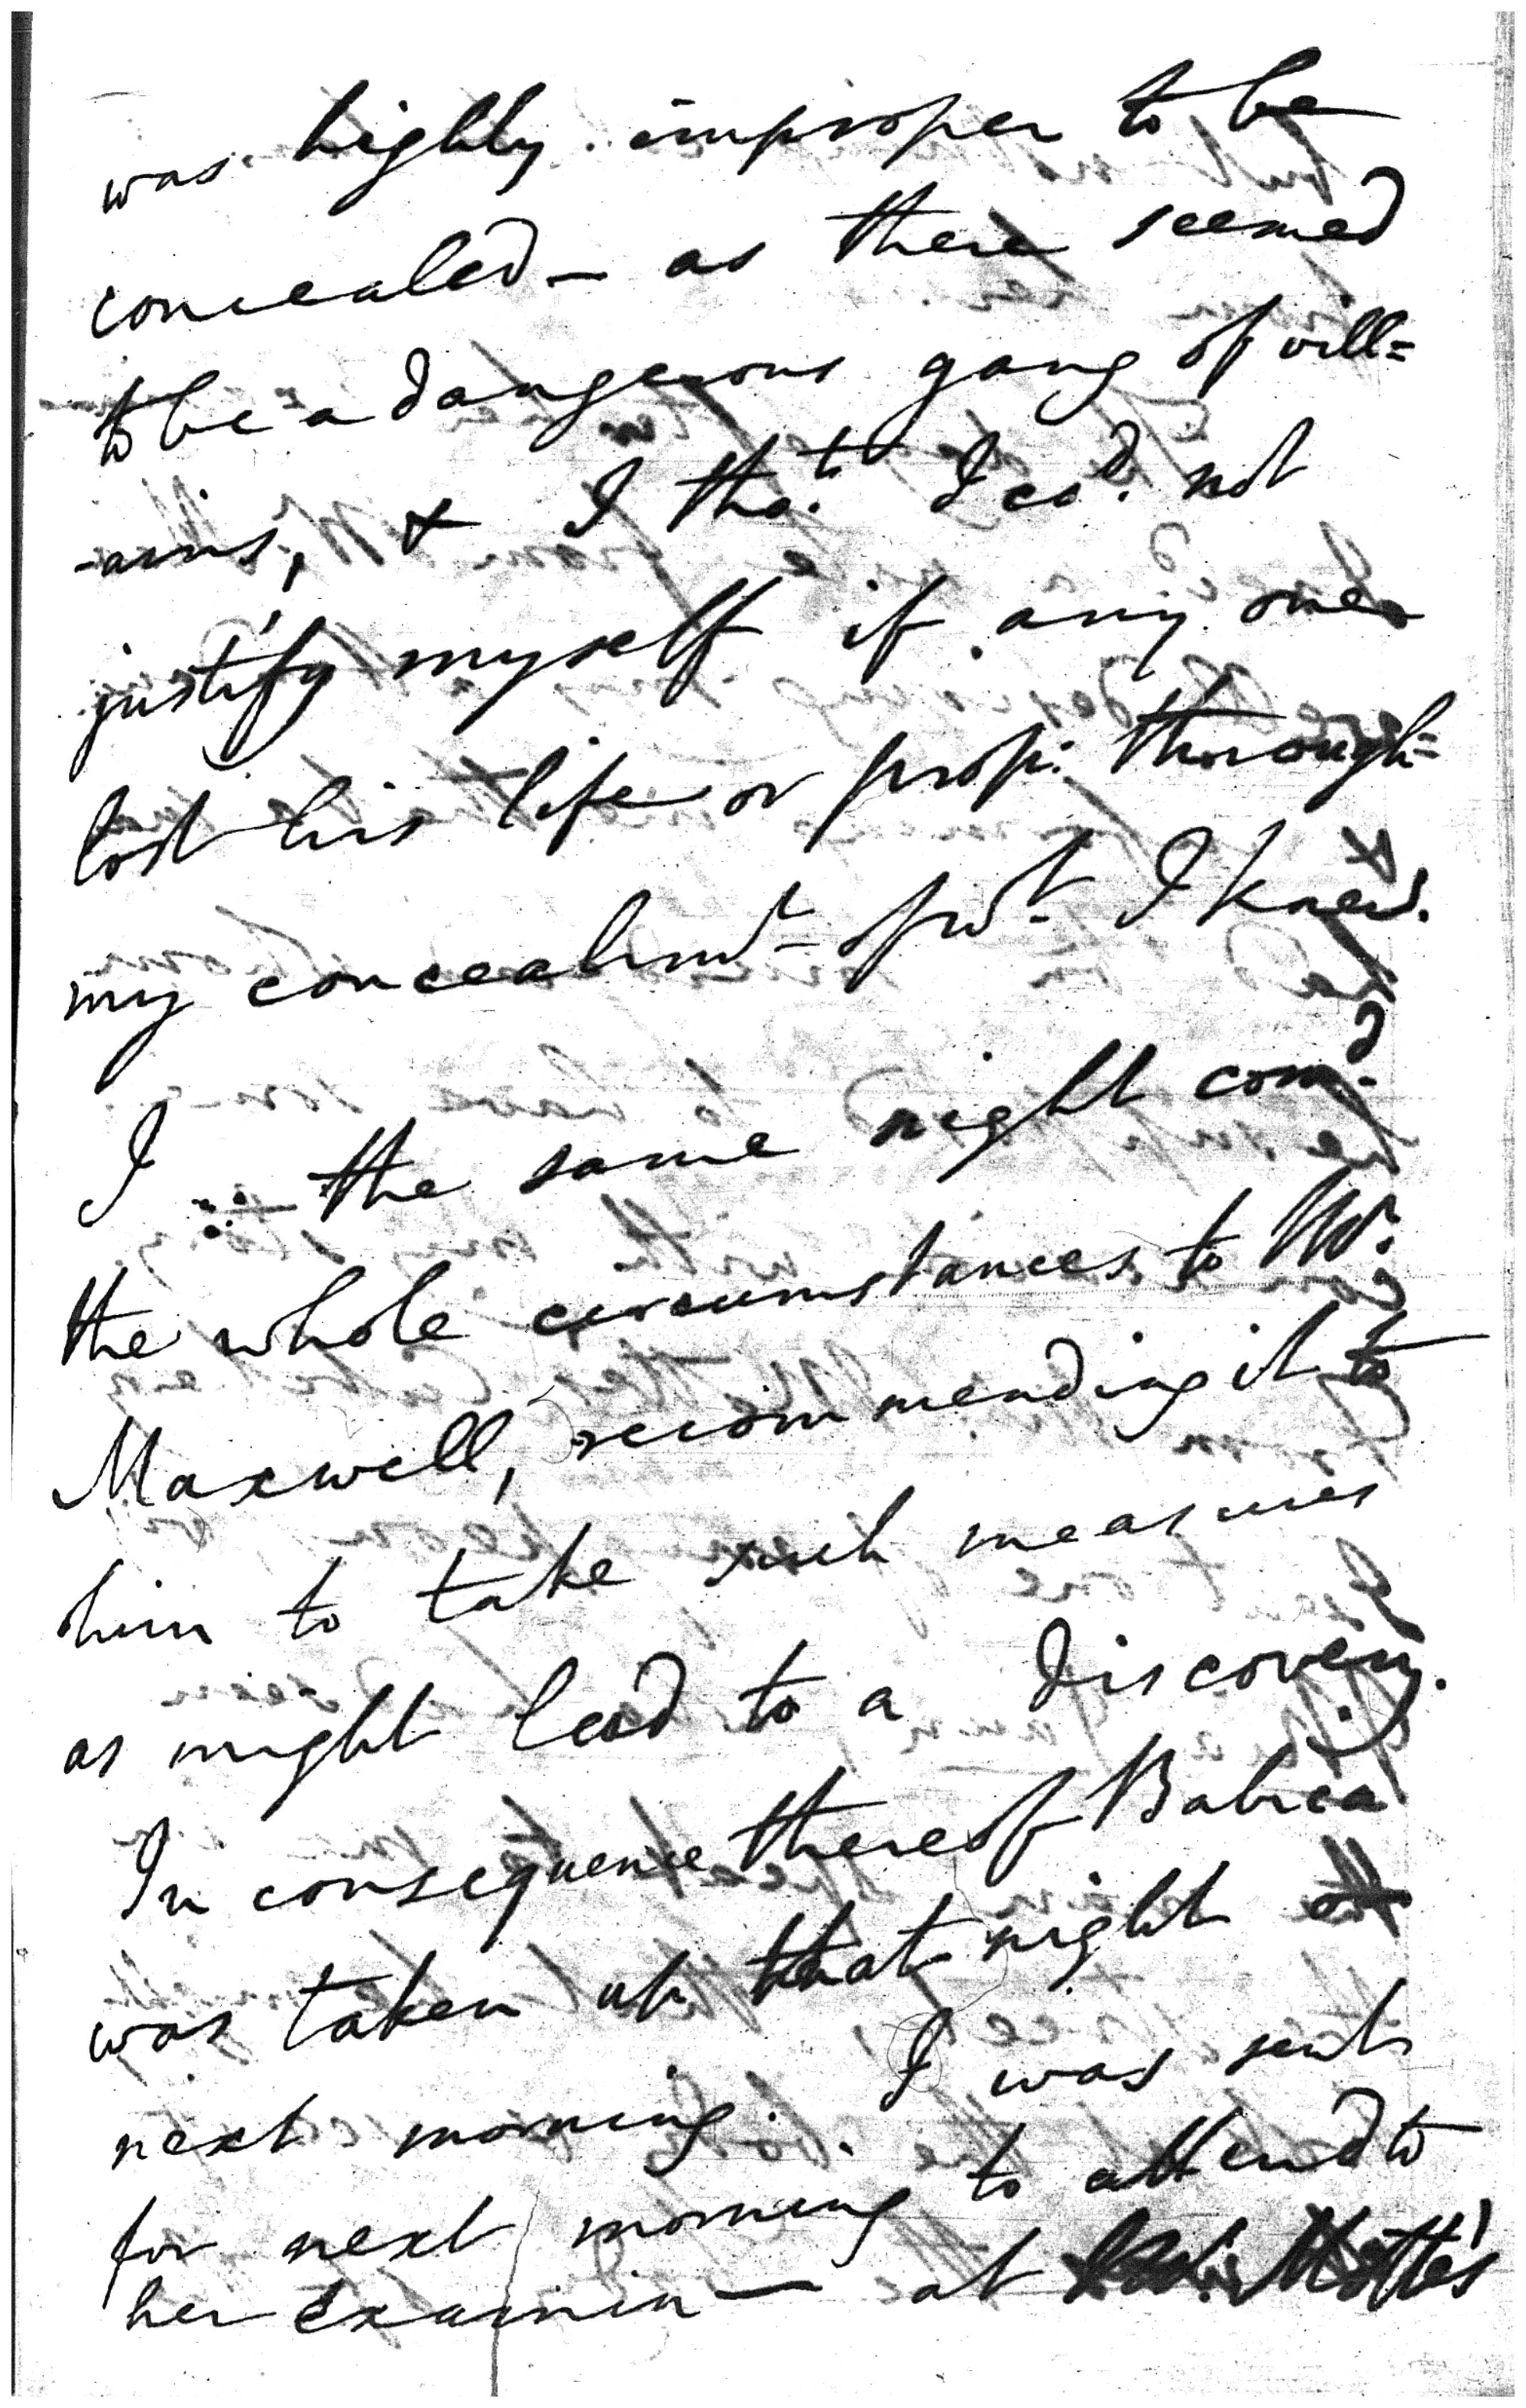 was highly improper to be
concealed – as there seemed
to be a dangerous gang of vill=
-ains, & I thot. I cod. not
justify myself if any one
lost his life or prop: through=
my concealmt – of wt. I knew.
I ∴ the same night comd.
the whole circumstances to Mr.
Maxwell, recommending it to
him to take such measures
as might lead to a discovery.
In consequence thereof Babica
was taken up that night
next morning. I was sent
for next morning to attend to
her Examinn — at Motte's